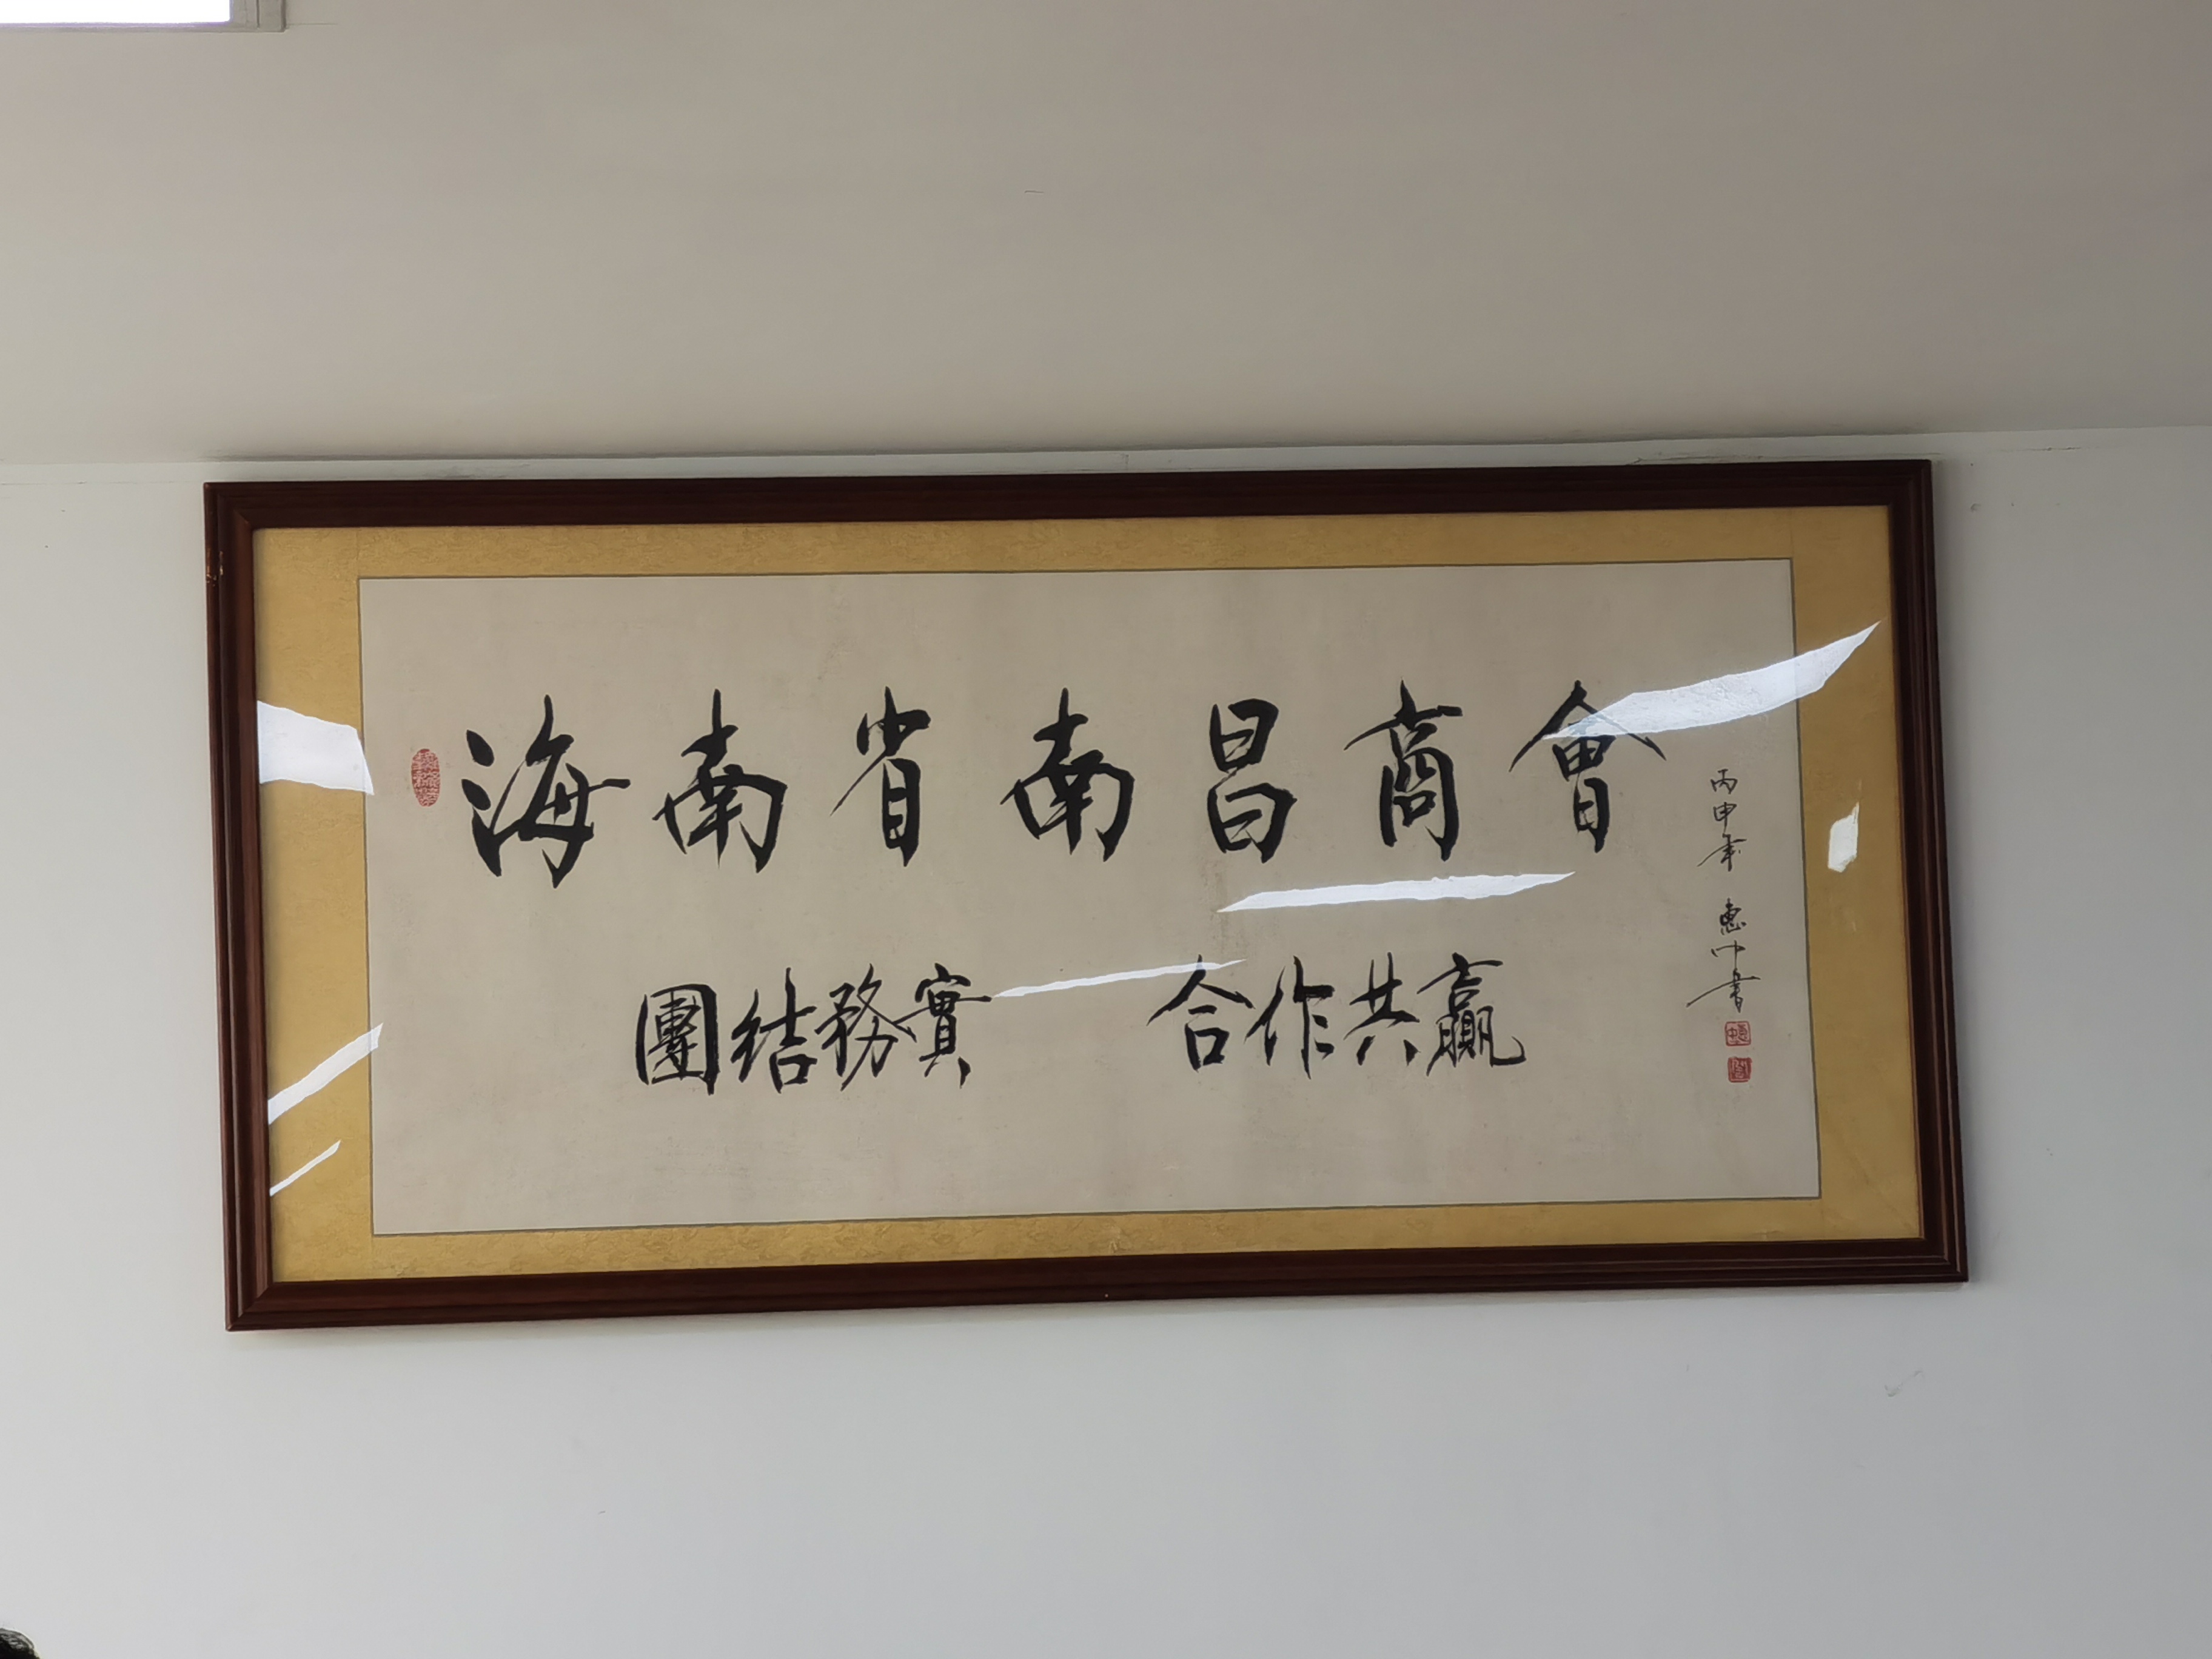 海南省南昌商會
團結務實 合作共贏
丙申年 惠中書